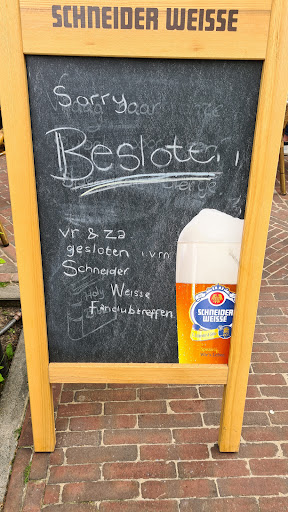 SCHNEIDER WEISSE
Sorry
Besloten
vr & za
gesloten i.v.m
Schneider
Weisse
Fanclubtreffen.
SCHNEIDER
WEISSE
SCHNEIDER WEISSE